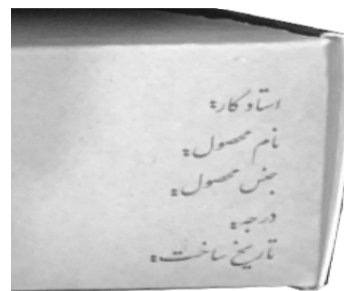 استاد کار:
نام محصول:
جنس محصول:
درجه:
تاریخ ساخت: